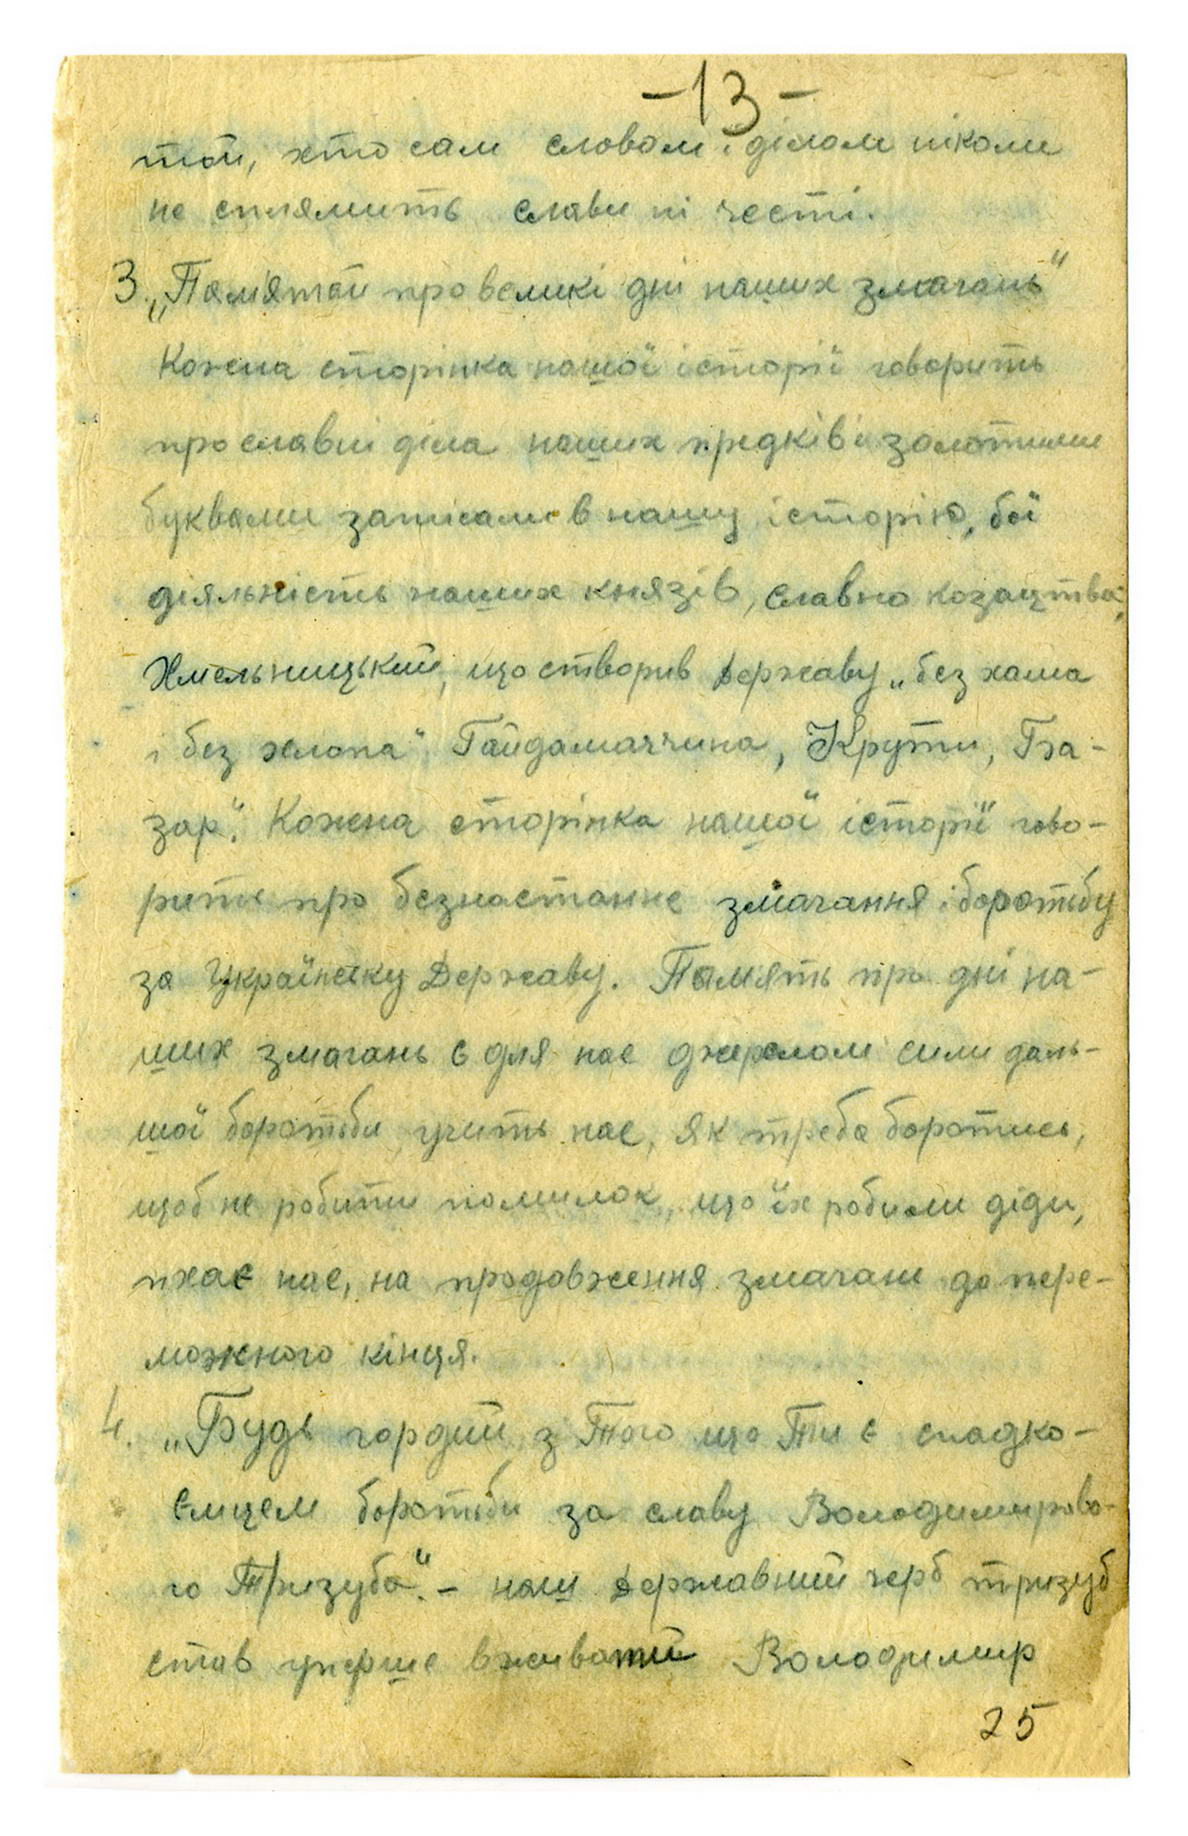 -13-
той, хто сам словом і ділом ніколи
не сплямить слави ні честі.
3. „Памятай про великі дні наших змагань"
Кожна сторінка нашої історії говорить
про славні діла наших предків і золотими
буквами записали в нашу історію, бої
діяльність наших князів, славна козацтва,
Хмельницький, що створив Державу „без хама
і без холопа" Гайдамаччина, Крути, Ба-
зар". Кожна сторінка нашої історії гово-
рить про безнастанне змагання і боротьбу
за Українську Державу. Память про дні на-
ших змагань є для нас джерелом сили даль-
шої боротьби, учить нас, як треба боротись,
щоб не робити помилок, що їх робили діди,
пхає нас, на продовження змагань до пере-
можного кінця.
4. „Будь гордий з Того що Ти є спадко-
ємцем боротьби за славу Володимирово-
го Тризуба". – наш Державний герб тризуб
став уперше вживати Володимир
25